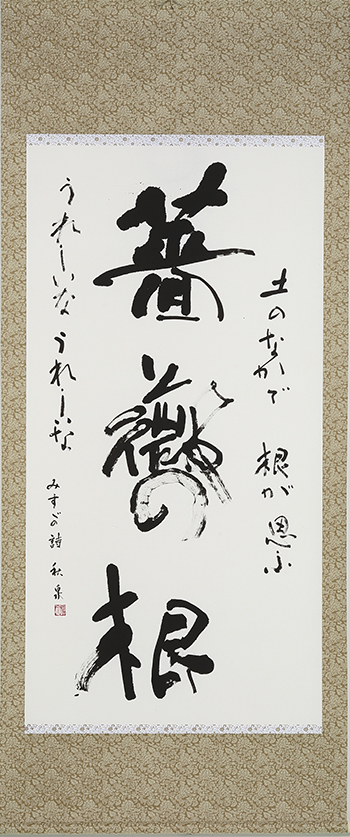 土のなかで 根が思ふ
薔薇の根
うれしいな うれしいな
みすゞの詩 秋泉